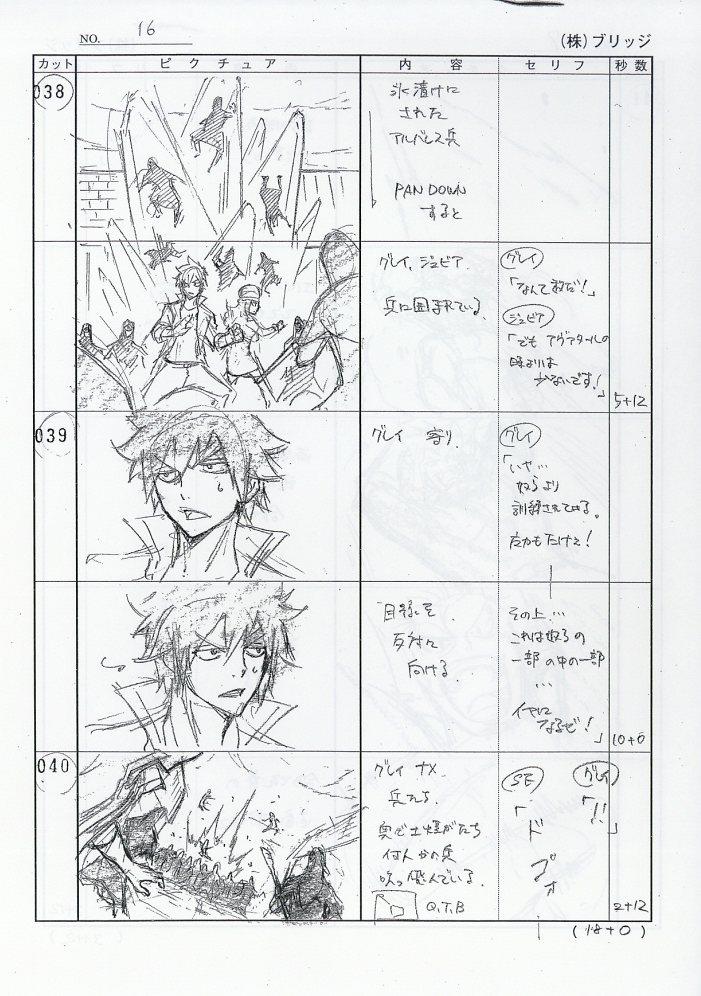 NO. 16
(株)ブリッジ
カット ピクチュア 内容 セリフ 秒数
038
氷漬けに
された
アルバレス兵
PAN DOWN
すると
グレイ、ジュビア
兵に囲まれている
グレイ
「なんて数だ!」
ジュビア
「でも アヴァタールの
時よりは
少ないです!」
5+12
039
グレイ 寄り
グレイ
「いや…
奴らより
訓練されてはる。
力もたけえ!
目線を
反対に
向ける
その上…
これは奴らの
一部の中の一部
…
イヤに
なるぜ!」
10+0
040
グレイ ナメ
兵たち
奥で土煙がたち
何人かの兵
吹っ飛んでいる
Q.T.B
SE
「ド
グレイ
「!!」
2+12
(18+0)